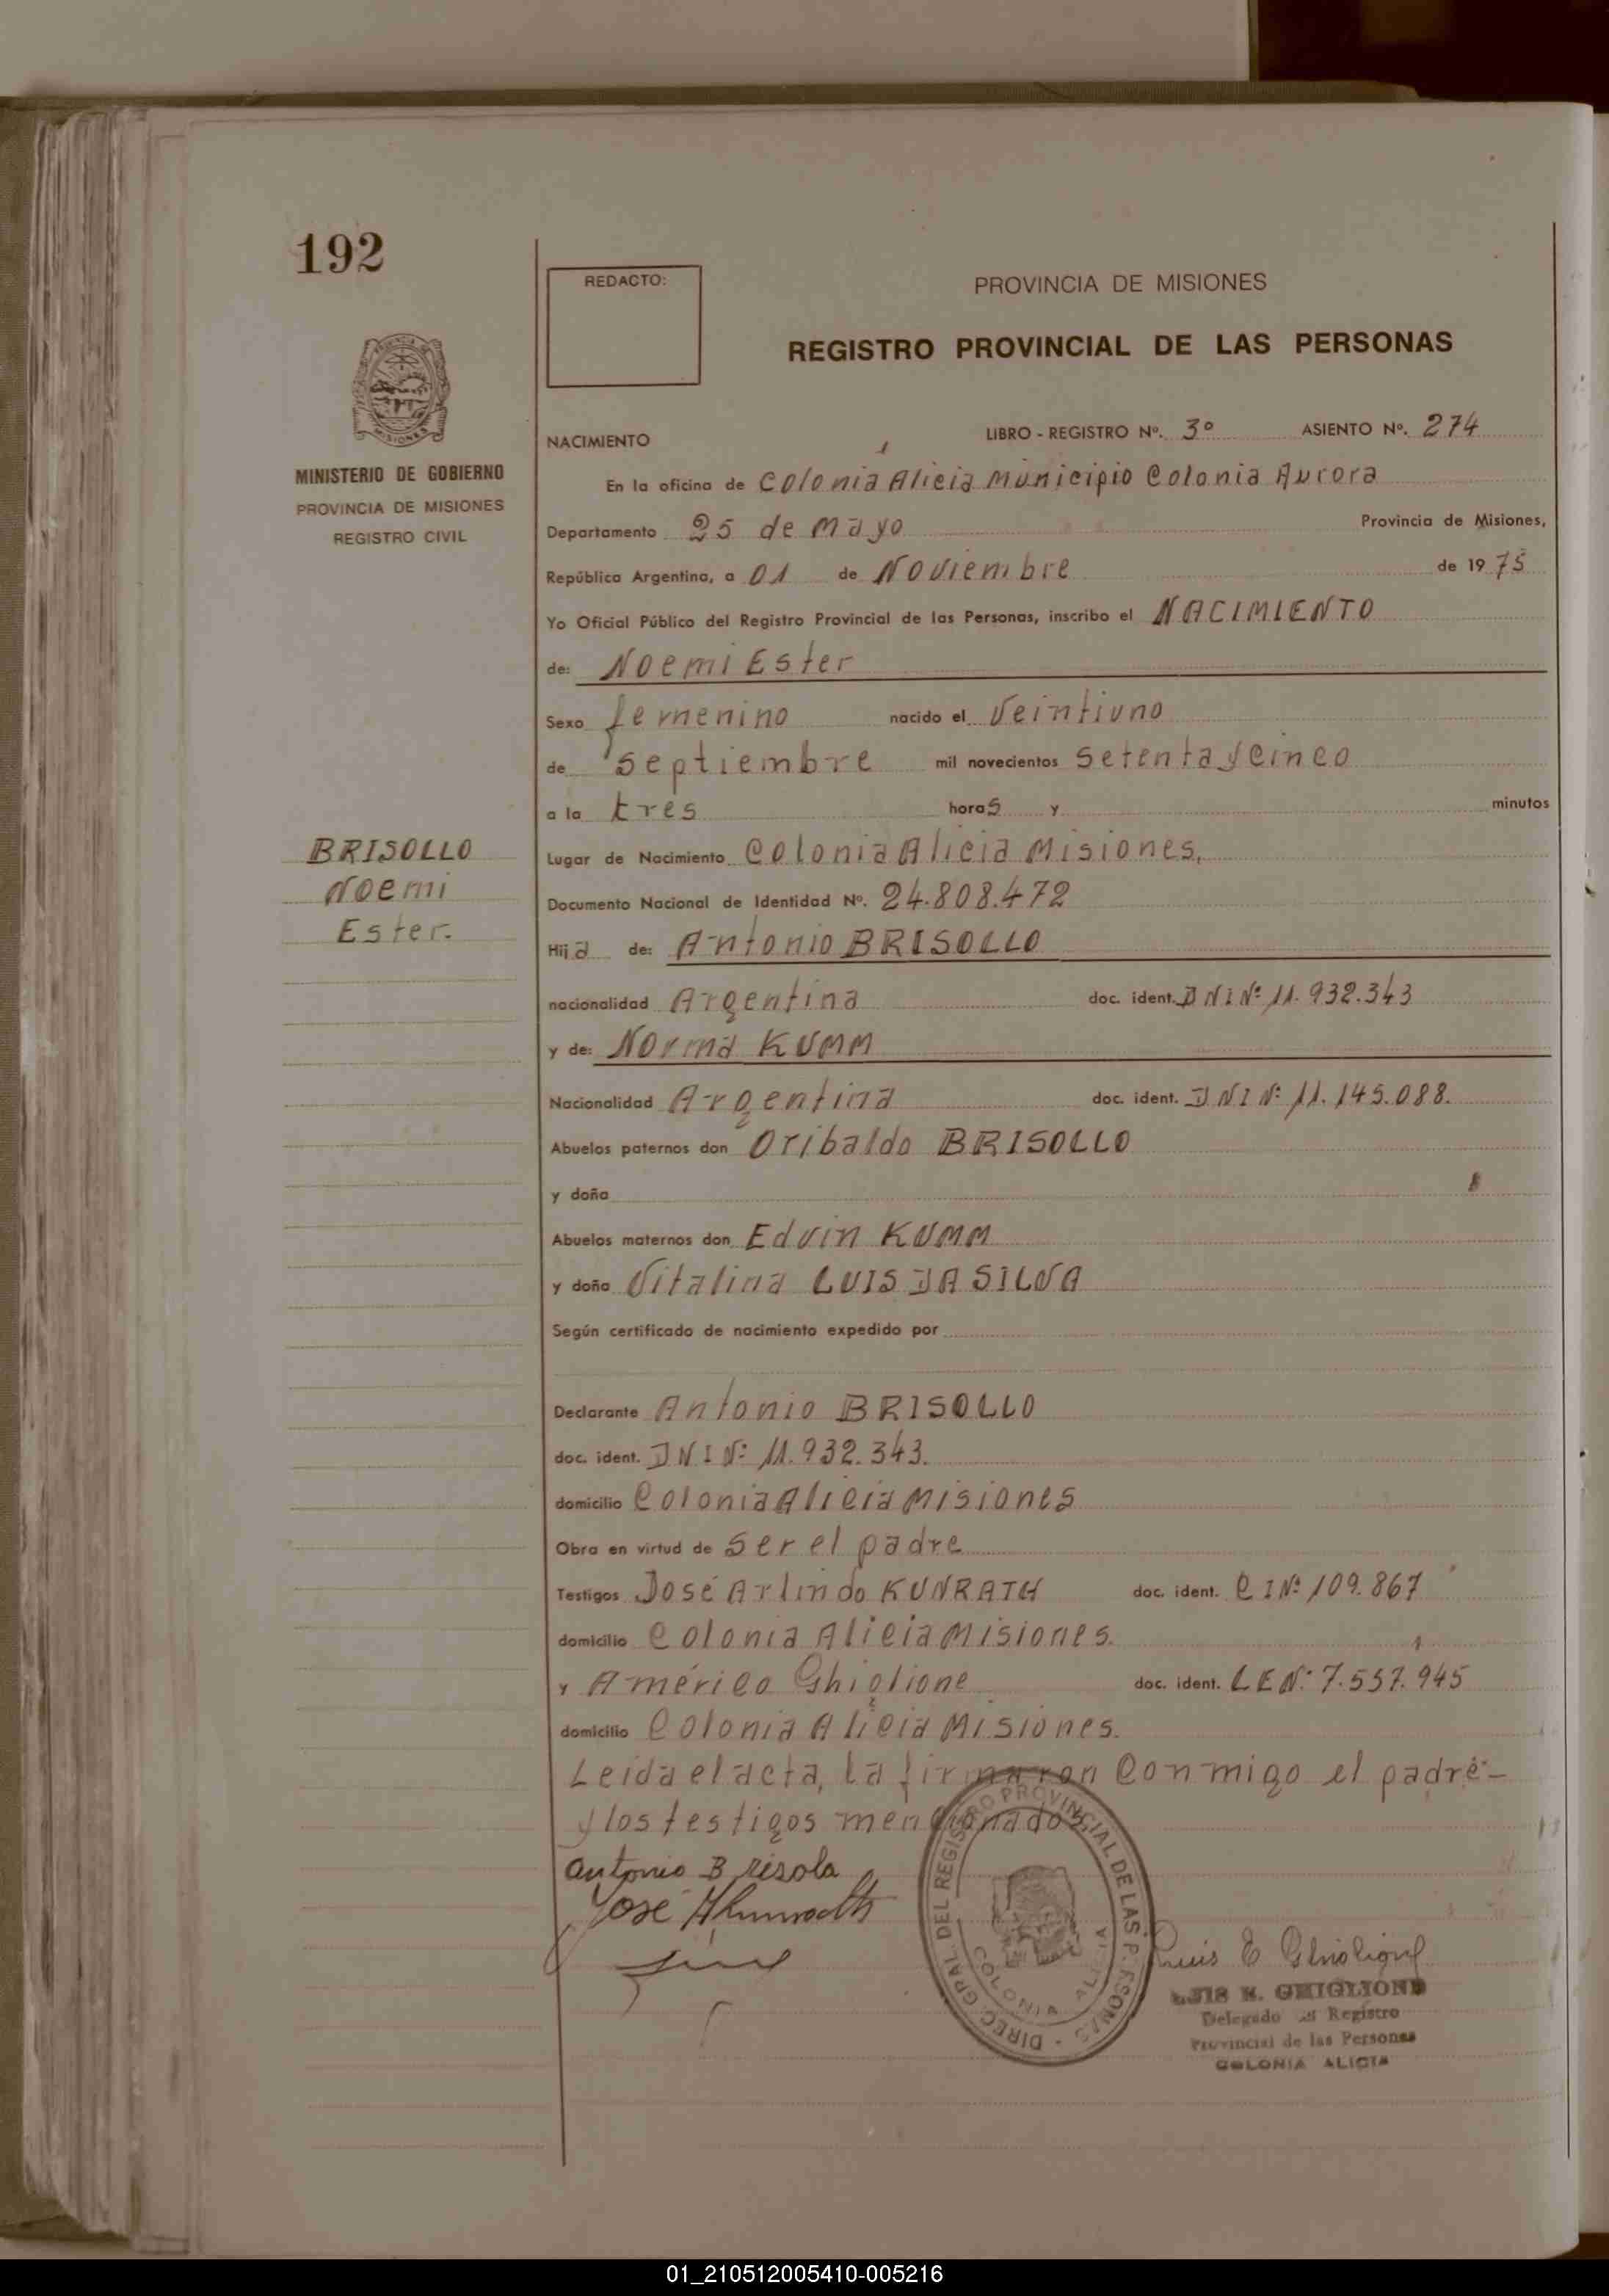 192
REDACTO:
PROVINCIA DE MISIONES
REGISTRO PROVINCIAL DE LAS PERSONAS
MISIONES
MINISTERIO DE GOBIERNO
PROVINCIA DE MISIONES
REGISTRO CIVIL
NACIMIENTO LIBRO - REGISTRO Nº. 3º ASIENTO Nº. 274
En la oficina de Colonia Alicia Municipio Colonia Aurora
Departamento 25 de Mayo Provincia de Misiones,
República Argentina, a 01 de Noviembre de 1975
Yo Oficial Público del Registro Provincial de las Personas, inscribo el NACIMIENTO
de: Noemi Ester
Sexo femenino nacido el Veintiuno
de septiembre mil novecientos setenta y cinco
a la tres horas y minutos
BRISOLLO
Noemi
Ester.
Lugar de Nacimiento Colonia Alicia Misiones,
Documento Nacional de Identidad Nº. 24.808.472
Hija de: Antonio BRISOLLO
nacionalidad Argentina doc. ident. DNI Nº 11.932.343
y de: Norma KUMM
Nacionalidad Argentina doc. ident. DNI Nº 11.145.088.
Abuelos paternos don Oribaldo BRISOLLO
y doña
Abuelos maternos don Edvin KUMM
y doña Vitalina LUIS DA SILVA
Según certificado de nacimiento expedido por
Declarante Antonio BRISOLLO
doc. ident. DNI Nº 11.932.343.
domicilio Colonia Alicia Misiones
Obra en virtud de ser el padre
Testigos José Arlindo KUNRATH doc. ident. CI Nº 109.867
domicilio Colonia Alicia Misiones.
y Américo Ghiglione doc. ident. LE Nº 7.557.945
domicilio Colonia Alicia Misiones.
Leida el acta, la firmaron conmigo el padre-
y los testigos mencionados,
Antonio Brisola
José
DIREC. GRAL DEL REGISTRO PROVINCIAL DE LAS PERSONAS -
COLONIA ALICIA
Luis E Ghiglione
LUIS E. GHIGLIONE
Delegado del Registro
Provincial de las Personas
COLONIA ALICIA
01_210512005410-005216